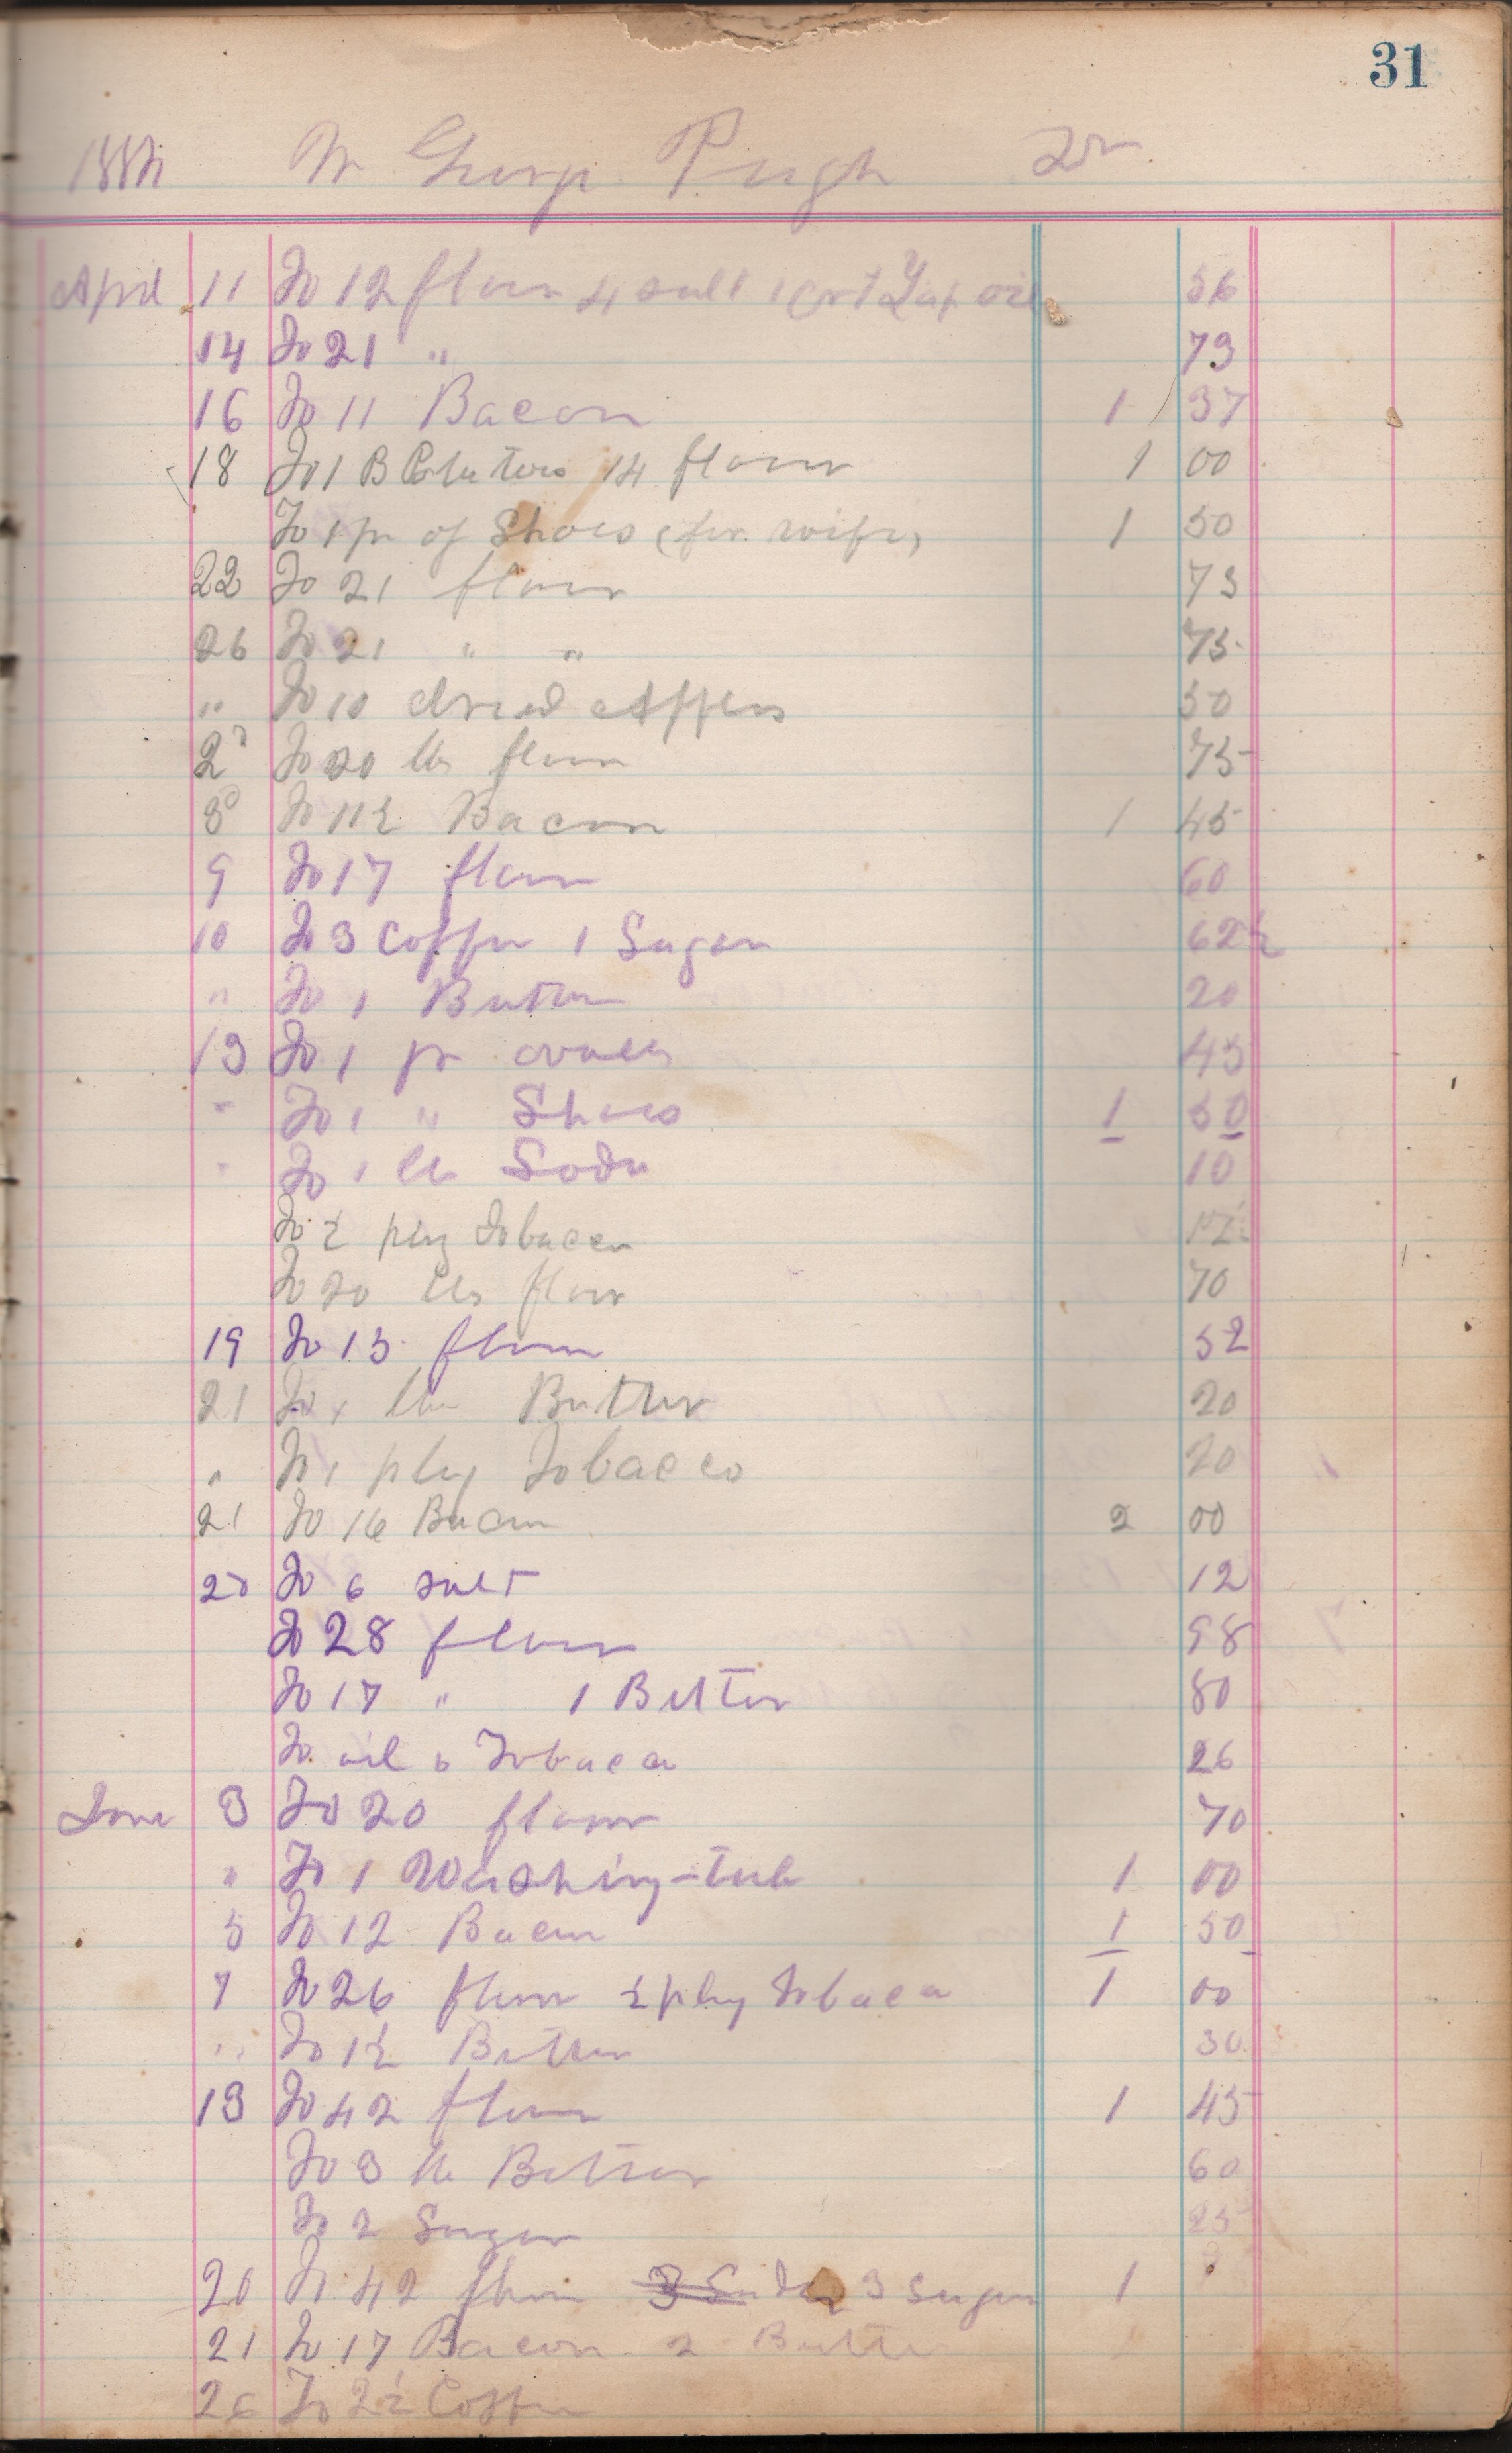 31
Mr George Pugh Dr.
April 11 To 12 flour 4 salt 1 oil 56
14 To 21 " 73
16 To 11 Bacon 1 37
18 To 1 B Potatoes 14 flour 1 00
To 1 pr of Shoes (for wife) 1 50
22 To 21 flour 73
26 To 21 " " 75
" To 10 dried Apples 50
To 20 lbs flour 75
To 11½ Bacon 1 45
9 To 17 flour 60
10 To 3 Coffee 1 Sugar 62½
" To 1 Butter 20
13 To 1 pr overalls 45
" To 1 " Shoes 1 50
" To 1 lb Soda 10
To ½ plug Tobacco
To 20 lbs flour 70
19 To 15 flour 52
21 To 1 lb Butter 20
" To 1 plug Tobacco 20
21 To 16 Bacon 2 00
To 6 salt 12
To 28 flour 98
To 17 " 1 Butter 80
To oil & Tobacco 26
June 3 To 20 flour 70
" To 1 Washing-tub 1 00
5 To 12 Bacon 1 50
7 To 26 flour ½ plug Tobacco 1 00
" To 1½ Butter 30
13 To 42 flour 1 45
To 3 lb Butter 60
To 2 Sugar 25
20 To 42 flour 3 Sugar 1
21 To 17 Bacon 2 Butter
26 To 2½ Coffee